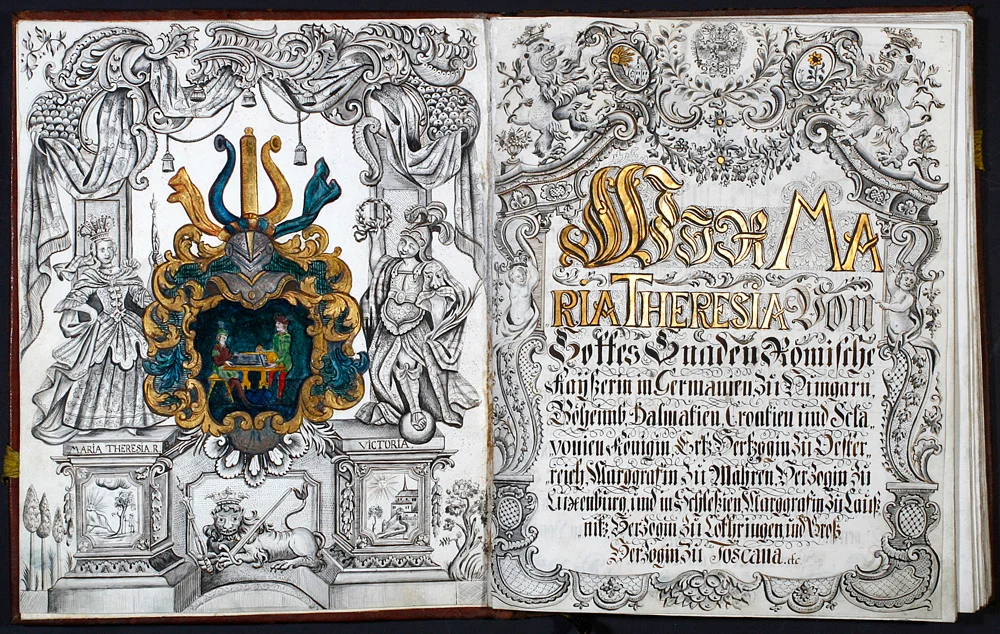 MARIA THERESIA R.
VICTORIA
2
Wir MA
RIA THERESIA Von
Gottes Gnaden Römische
Kaÿßerin in Germanien Zu Hungarn
Böheimb Dalmatien Croatien und Scla„
vonien Königin Ertz Hertzogin Zu Oester„
reich, Marggrafin Zu Mahren Herzogin Zu
Lützenburg und in Schleßien Marggrafin Zu Lauß„
nitz Herzogin Zu Lothringen und Groß
Herzogin Zu Toscana. etc